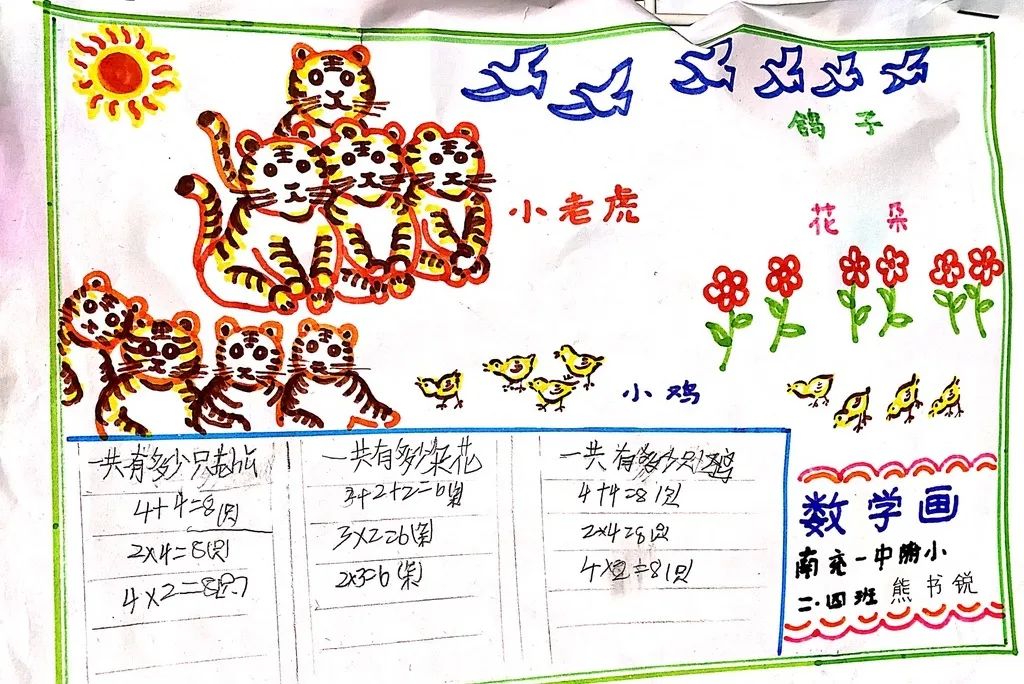 鸽子
小老虎
花朵
小鸡
一共有多少只老虎
4+4=8(只)
2×4=8(只)
4×2=8(只)
一共有多少朵花
3+2+2=6(朵)
3×2=6(朵)
2×3=6(朵)
一共有多少只鸡
4+4=8(只)
2×4=8(只)
4×2=8(只)
数学画
南充一中附小
二·四班 熊书锐